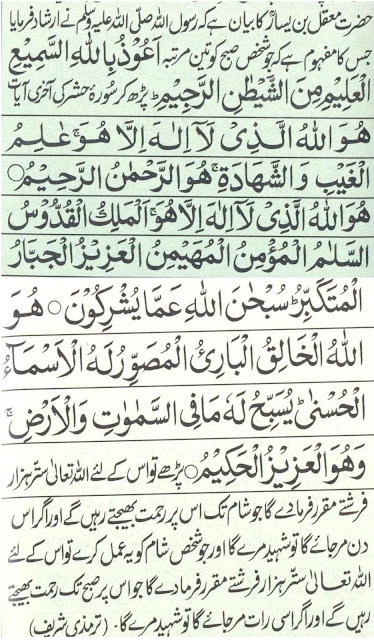 حضرت معقل بن یسارؓ کا بیان ہے کہ رسول اللہ صلی اللہ علیہ وسلم نے ارشاد فرمایا
جس کا مفہوم ہے کہ جو شخص صبح کو تین مرتبہ اَعُوْذُ بِاللهِ السَّمِیْعِ
الْعَلِیْمِ مِنَ الشَّیْطٰنِ الرَّجِیْمِ پڑھ کر سورۂ حشر کی آخری آیات
هُوَ اللهُ الَّذِیْ لَآ اِلٰهَ اِلَّا هُوَ ۚ عٰلِمُ
الْغَیْبِ وَ الشَّهَادَةِ ۚ هُوَ الرَّحْمٰنُ الرَّحِیْمُ ○
هُوَ اللهُ الَّذِیْ لَآ اِلٰهَ اِلَّا هُوَ ۚ اَلْمَلِكُ الْقُدُّوْسُ
السَّلٰمُ الْمُؤْمِنُ الْمُهَیْمِنُ الْعَزِیْزُ الْجَبَّارُ
الْمُتَكَبِّرُ ؕ سُبْحٰنَ اللهِ عَمَّا یُشْرِكُوْنَ ○ هُوَ
اللهُ الْخَالِقُ الْبَارِئُ الْمُصَوِّرُ لَهُ الْاَسْمَآءُ
الْحُسْنٰی ؕ یُسَبِّحُ لَهٗ مَا فِی السَّمٰوٰتِ وَ الْاَرْضِ ۚ
وَهُوَ الْعَزِیْزُ الْحَكِیْمُ ○ پڑھے تو اس کے لئے اللہ تعالیٰ ستّر ہزار
فرشتے مقرر فرما دے گا جو شام تک اس پر رحمت بھیجتے رہیں گے اور اگر اس
دن مر جائے گا تو شہید مرے گا اور جو شخص شام کو یہ عمل کرے تو اس کے لئے
اللہ تعالیٰ ستّر ہزار فرشتے مقرر فرما دے گا جو اس پر صبح تک رحمت بھیجتے
رہیں گے اور اگر اسی رات مر جائے گا تو شہید مرے گا۔ (ترمذی شریف)